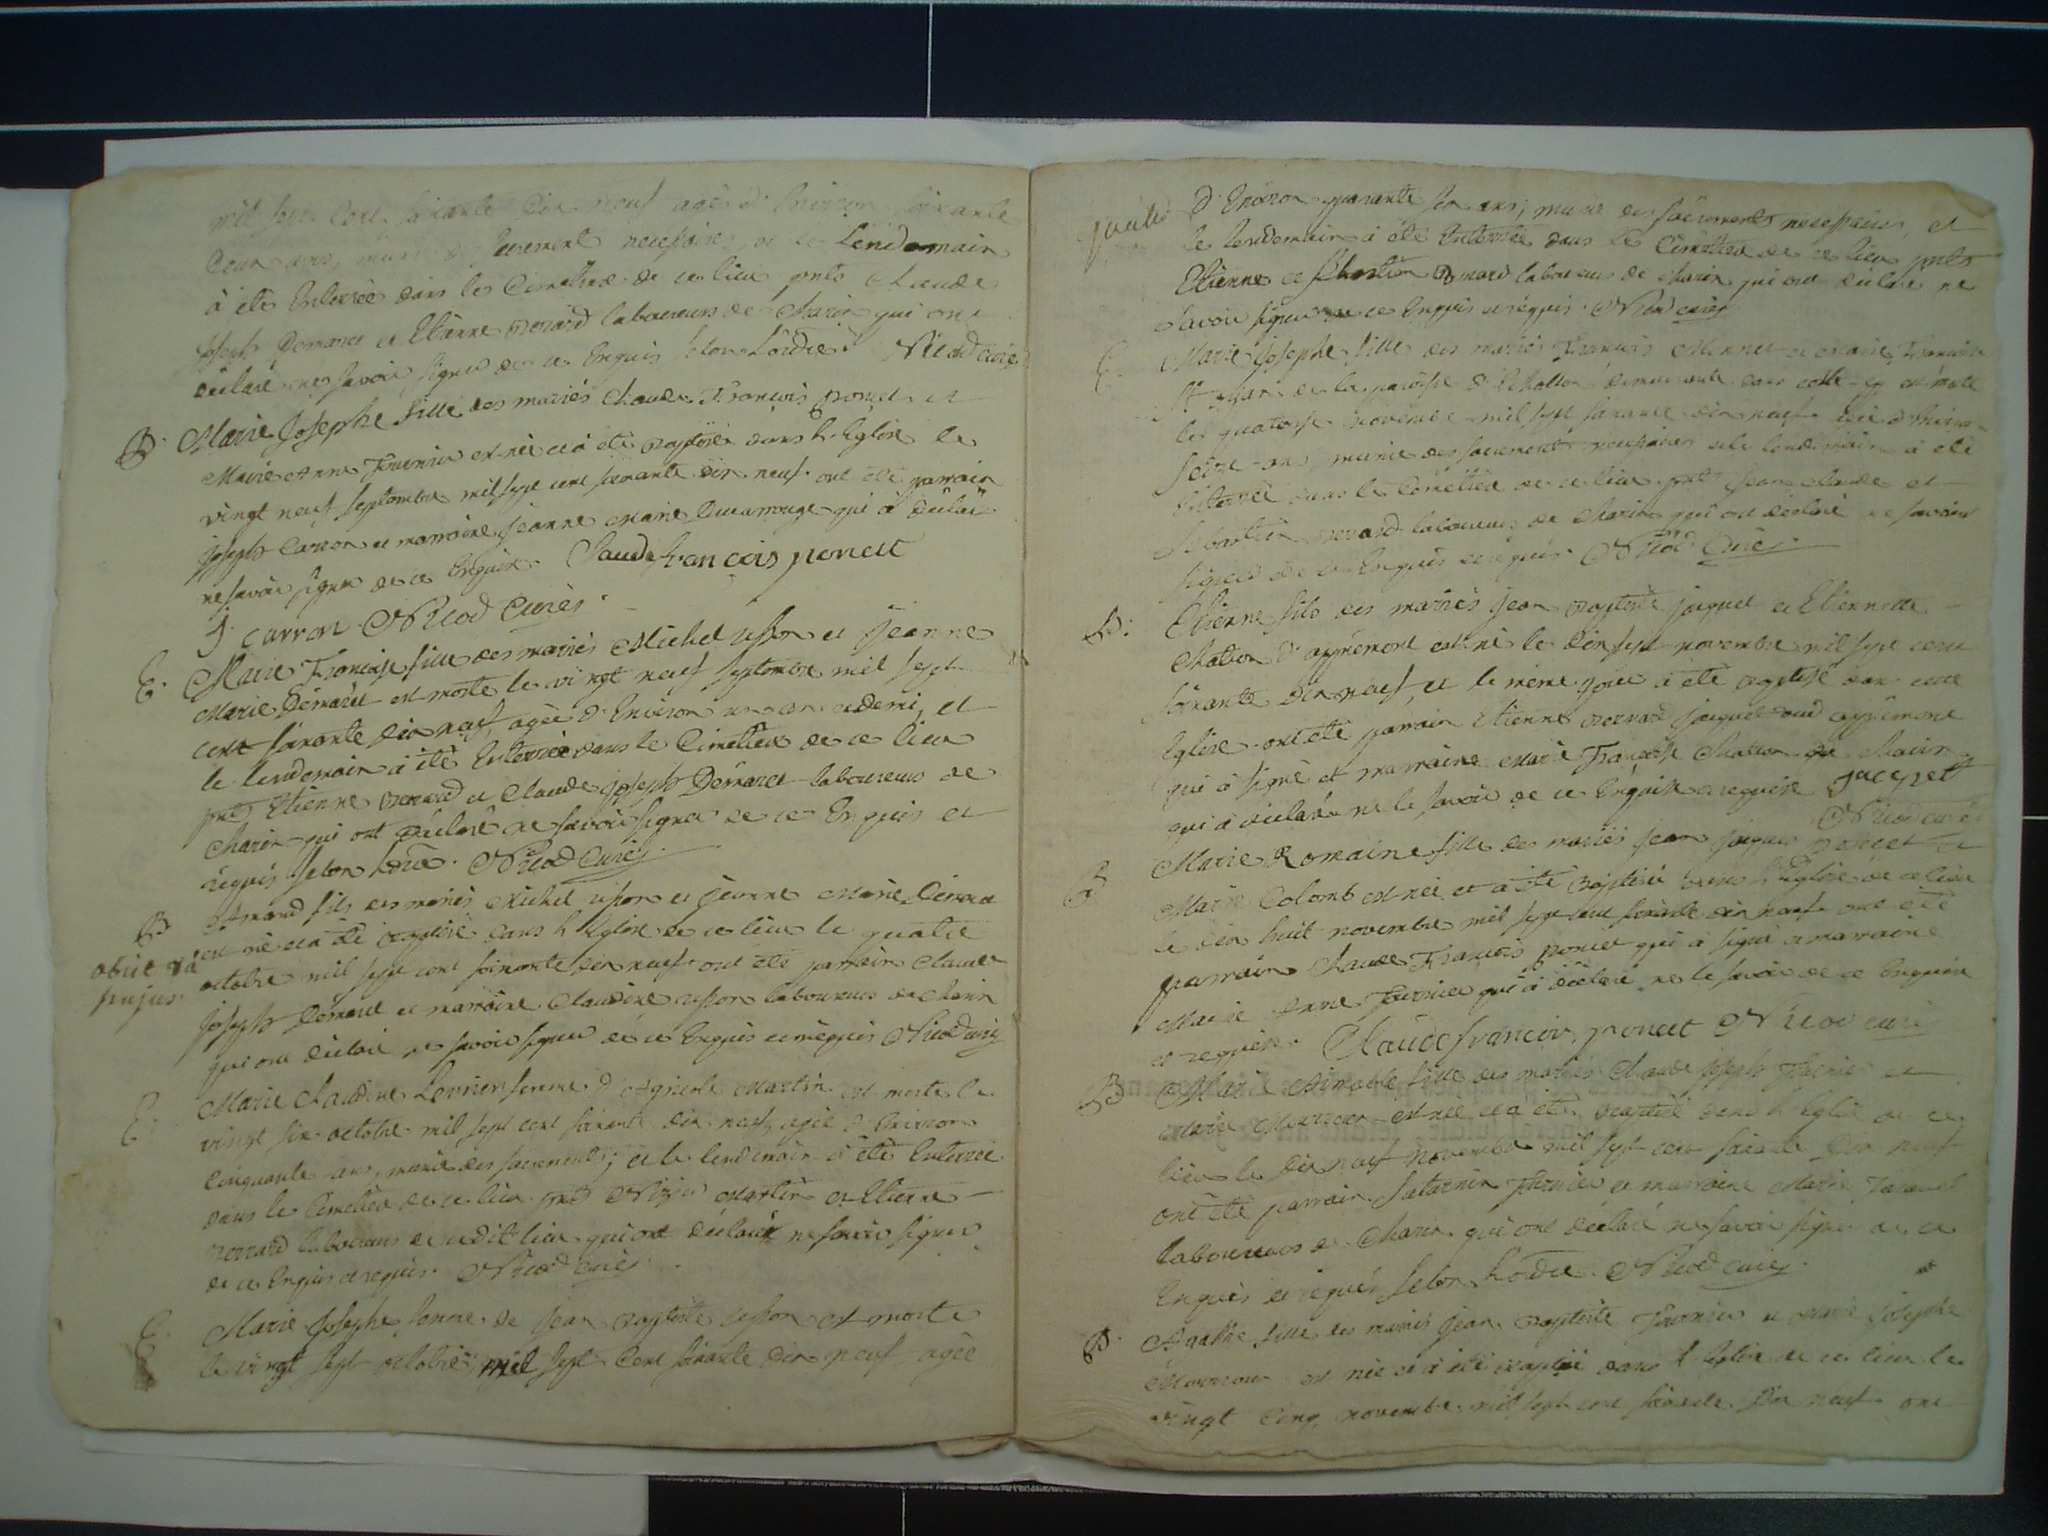 mil sept cent soixante dix neuf agé d'Environ soixante
deux ans, muni des sacrements necessaires, et le Lendemain
à été Enterrée dans le Cimetiere de ce lieu prets Claude
joseph Demaret et Etienne Renard laboureurs de Charin qui ont
déclaré ne savoir signer de ce Enquis selon Lordre. Nicod curé
B. Marie josephe fille des mariés Claude François poncet et
Marie Anne Fournier est née et à été Baptisée dans l'Eglise le
vingt neuf septembre mil sept cent soixante dix neuf ont été parrain
joseph Carron et marraine jeanne Marie qui à déclaré
ne savoir signer de ce Enquise. Claude francois poncett
J carron. Nicod Curé.
E. Marie Françoise fille des mariés Michel et jeanne
Marie Démaret est morte le vingt neuf septembre mil sept
cent soixante dix neuf, agée d'Environ un an et demi, et
le lendemain à été Enterrée dans le Cimetiere de ce lieu
prts Etienne Renard et Claude joseph Démaret laboureurs de
Charin qui ont déclaré ne savoir signer de ce Enquis et
requis selon lordre. Nicod Curé.
B Amand fils des mariés Michel et jeanne Marie Démaret
obiit
est né et à été Baptisé dans l'Eglise de ce lieu le quatre
octobre mil sept cent soixante dix neuf ont été parrain Claude
joseph Démaret et marraine Claudine laboureurs de Charin
qui ont déclaré ne savoir signer de ce Enquis et requis Nicod curé
E. Marie Claudine femme d' Martin est morte le
vingt six octobre mil sept cent soixante dix neuf, agée d'Environ
Cinquante ans, munie des sacrements; et le lendemain à été Enterrée
dans le Cimetiere de ce lieu prts Martin et Etienne
Renard laboureurs de cedit lieu qui ont déclaré ne savoir signer
de ce Enquis et requis. Nicod curé
E. Marie josephe femme de jean Baptiste est morte
le vingt sept octobre mil sept cent soixante dix neuf agée
d'Environ quarante six ans; munie des sacrements necessaires, et
le lendemain à été Enterrée dans le Cimetiere de ce lieu prets
Etienne et Sebastien Renard laboureurs de Charin qui ont déclaré ne
savoir signer de ce Enquis et requis. Nicod curé
E. Marie josephe fille des mariés François Monnet et Marie Françoise
de la paroisse d' demeurante dans celle-cy est morte
le quatorze novembre mil sept soixante dix neuf agée d'Environ
seize ans, munie des sacrements necessaires et le lendemain à été
Enterrée dans le Cimetiere de ce lieu prts jean Claude et
Sebastien Renard laboureurs de Charin qui ont déclaré ne savoir
signer de ce Enquis et requis. Nicod Curé.
B. Etienne fils des mariés jean Baptiste jacquet et Etiennette
Chatton d'appremont est né le dix sept novembre mil sept cent
soixante dix neuf, et le même jour à été Baptisé dans cette
Eglise ont été parrain Etienne Bernard jacquet dud appremont
qui à signé et marraine Marie Françoise Chatton de Charin
qui à déclaré ne le savoir de ce Enquise et requise jacquett
Nicod curé
B Marie Romaine fille des mariés jean jacques poncet et
Marie Colomb est née et à été Baptisée dans l'Eglise de ce lieu
le dix huit novembre mil sept cent soixante dix neuf ont été
parrain Claude François poncet qui à signé et marraine
Marie Anne Fournier qui à déclaré ne le savoir de ce Enquise
et requise. Claude francois poncett Nicod curé
B Marie Aimable fille des mariés Claude joseph Fournier et
Marie est née et à été Baptisée dans l'Eglise de ce
lieu le dix neuf novembre mil sept cent soixante dix neuf
ont été parrain Saturnin Fournier et marraine Marie
laboureurs de Charin qui ont déclaré ne savoir signer de ce
Enquis et requis selon Lordre. Nicod curé.
B. Agathe fille des mariés jean Baptiste Fournier et Marie josephe
est née et à été Baptisée dans l'Eglise de ce lieu le
vingt cinq novembre mil sept cent soixante dix neuf ont